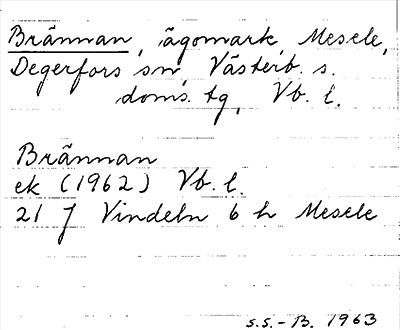 Brännan, ägomark, Mesele,
Degerfors sn, Västerb. s.
doms. tg, Vb. l.
Brännan
ek (1962) Vb. l.
21 J Vindeln 6 h Mesele
S.S.-B. 1963